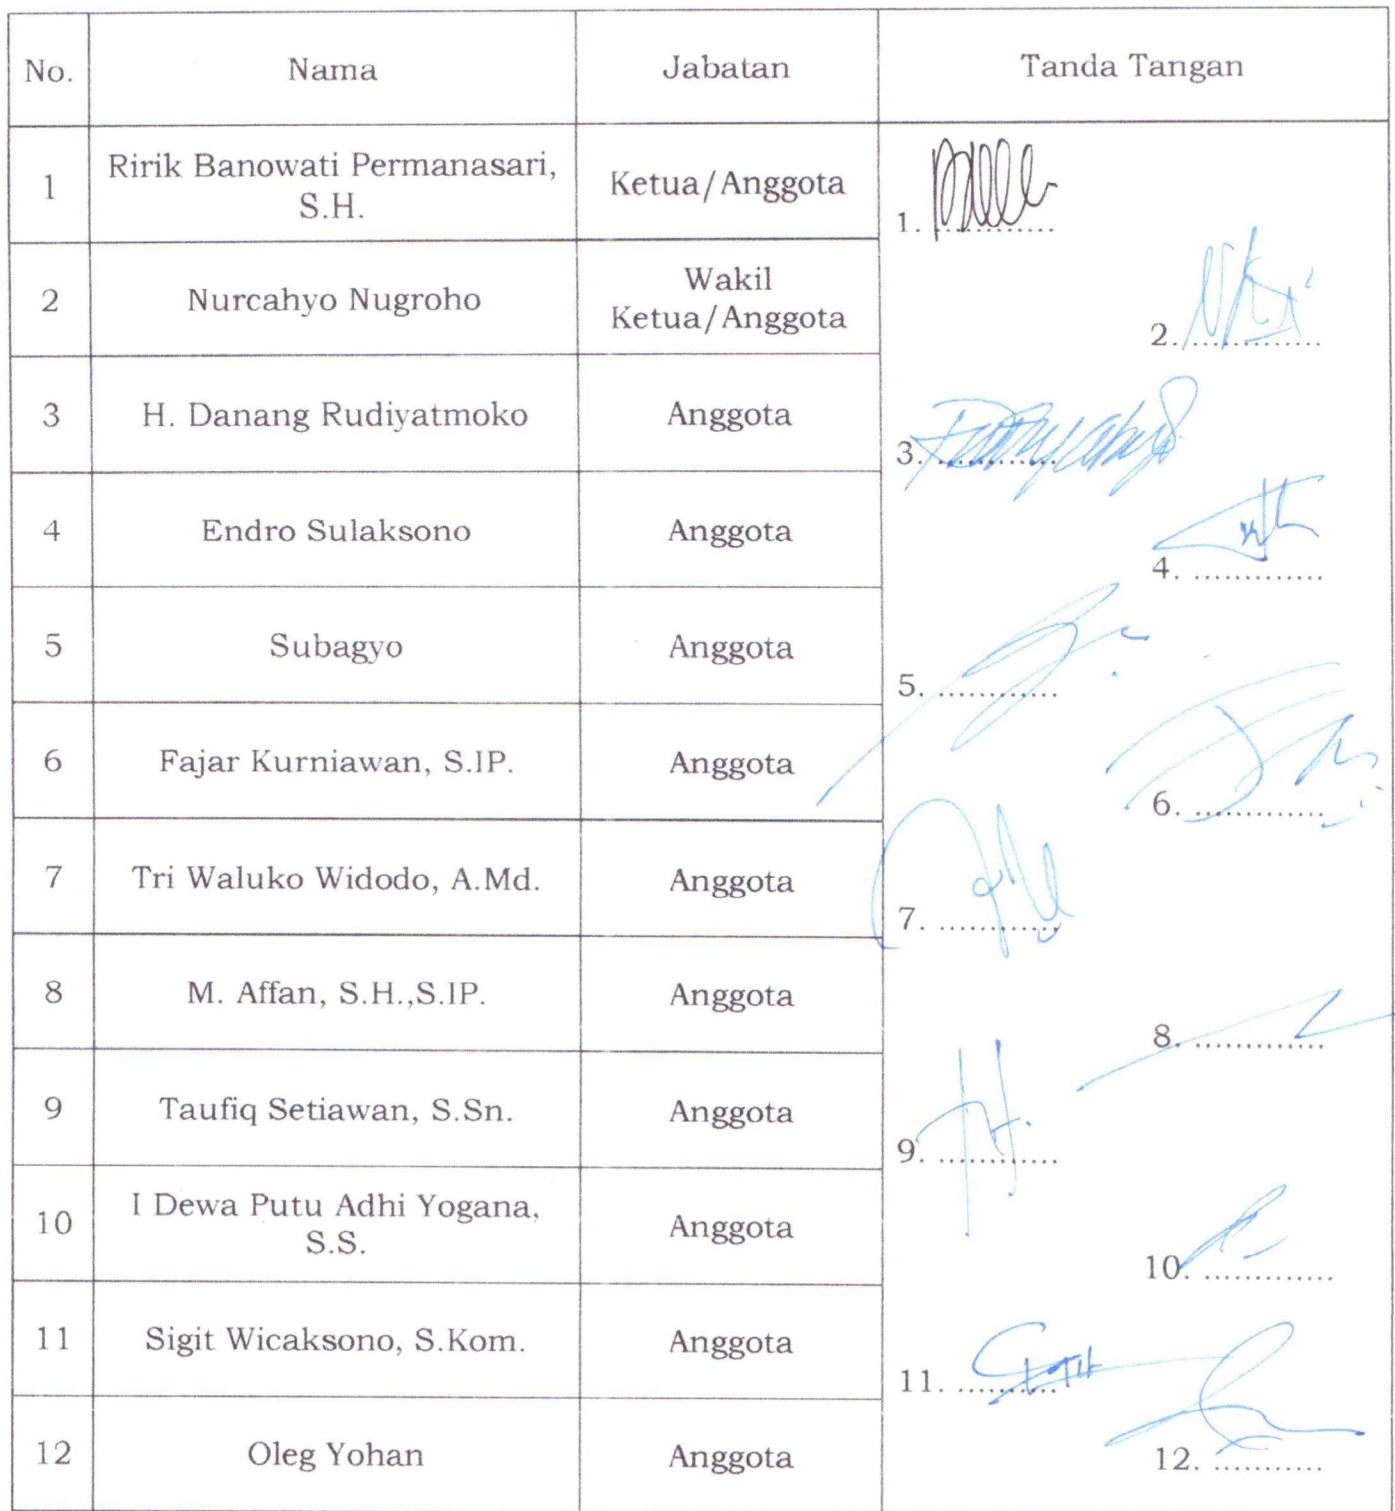 No. Nama Jabatan Tanda Tangan
1 Ririk Banowati Permanasari, S.H. Ketua/Anggota 1. .............
2 Nurcahyo Nugroho Wakil Ketua/Anggota 2. .............
3 H. Danang Rudiyatmoko Anggota 3. .............
4 Endro Sulaksono Anggota 4. .............
5 Subagyo Anggota 5. .............
6 Fajar Kurniawan, S.IP. Anggota 6. .............
7 Tri Waluko Widodo, A.Md. Anggota 7. .............
8 M. Affan, S.H.,S.IP. Anggota 8. .............
9 Taufiq Setiawan, S.Sn. Anggota 9. .............
10 I Dewa Putu Adhi Yogana, S.S. Anggota 10. .............
11 Sigit Wicaksono, S.Kom. Anggota 11. .............
12 Oleg Yohan Anggota 12. ...........